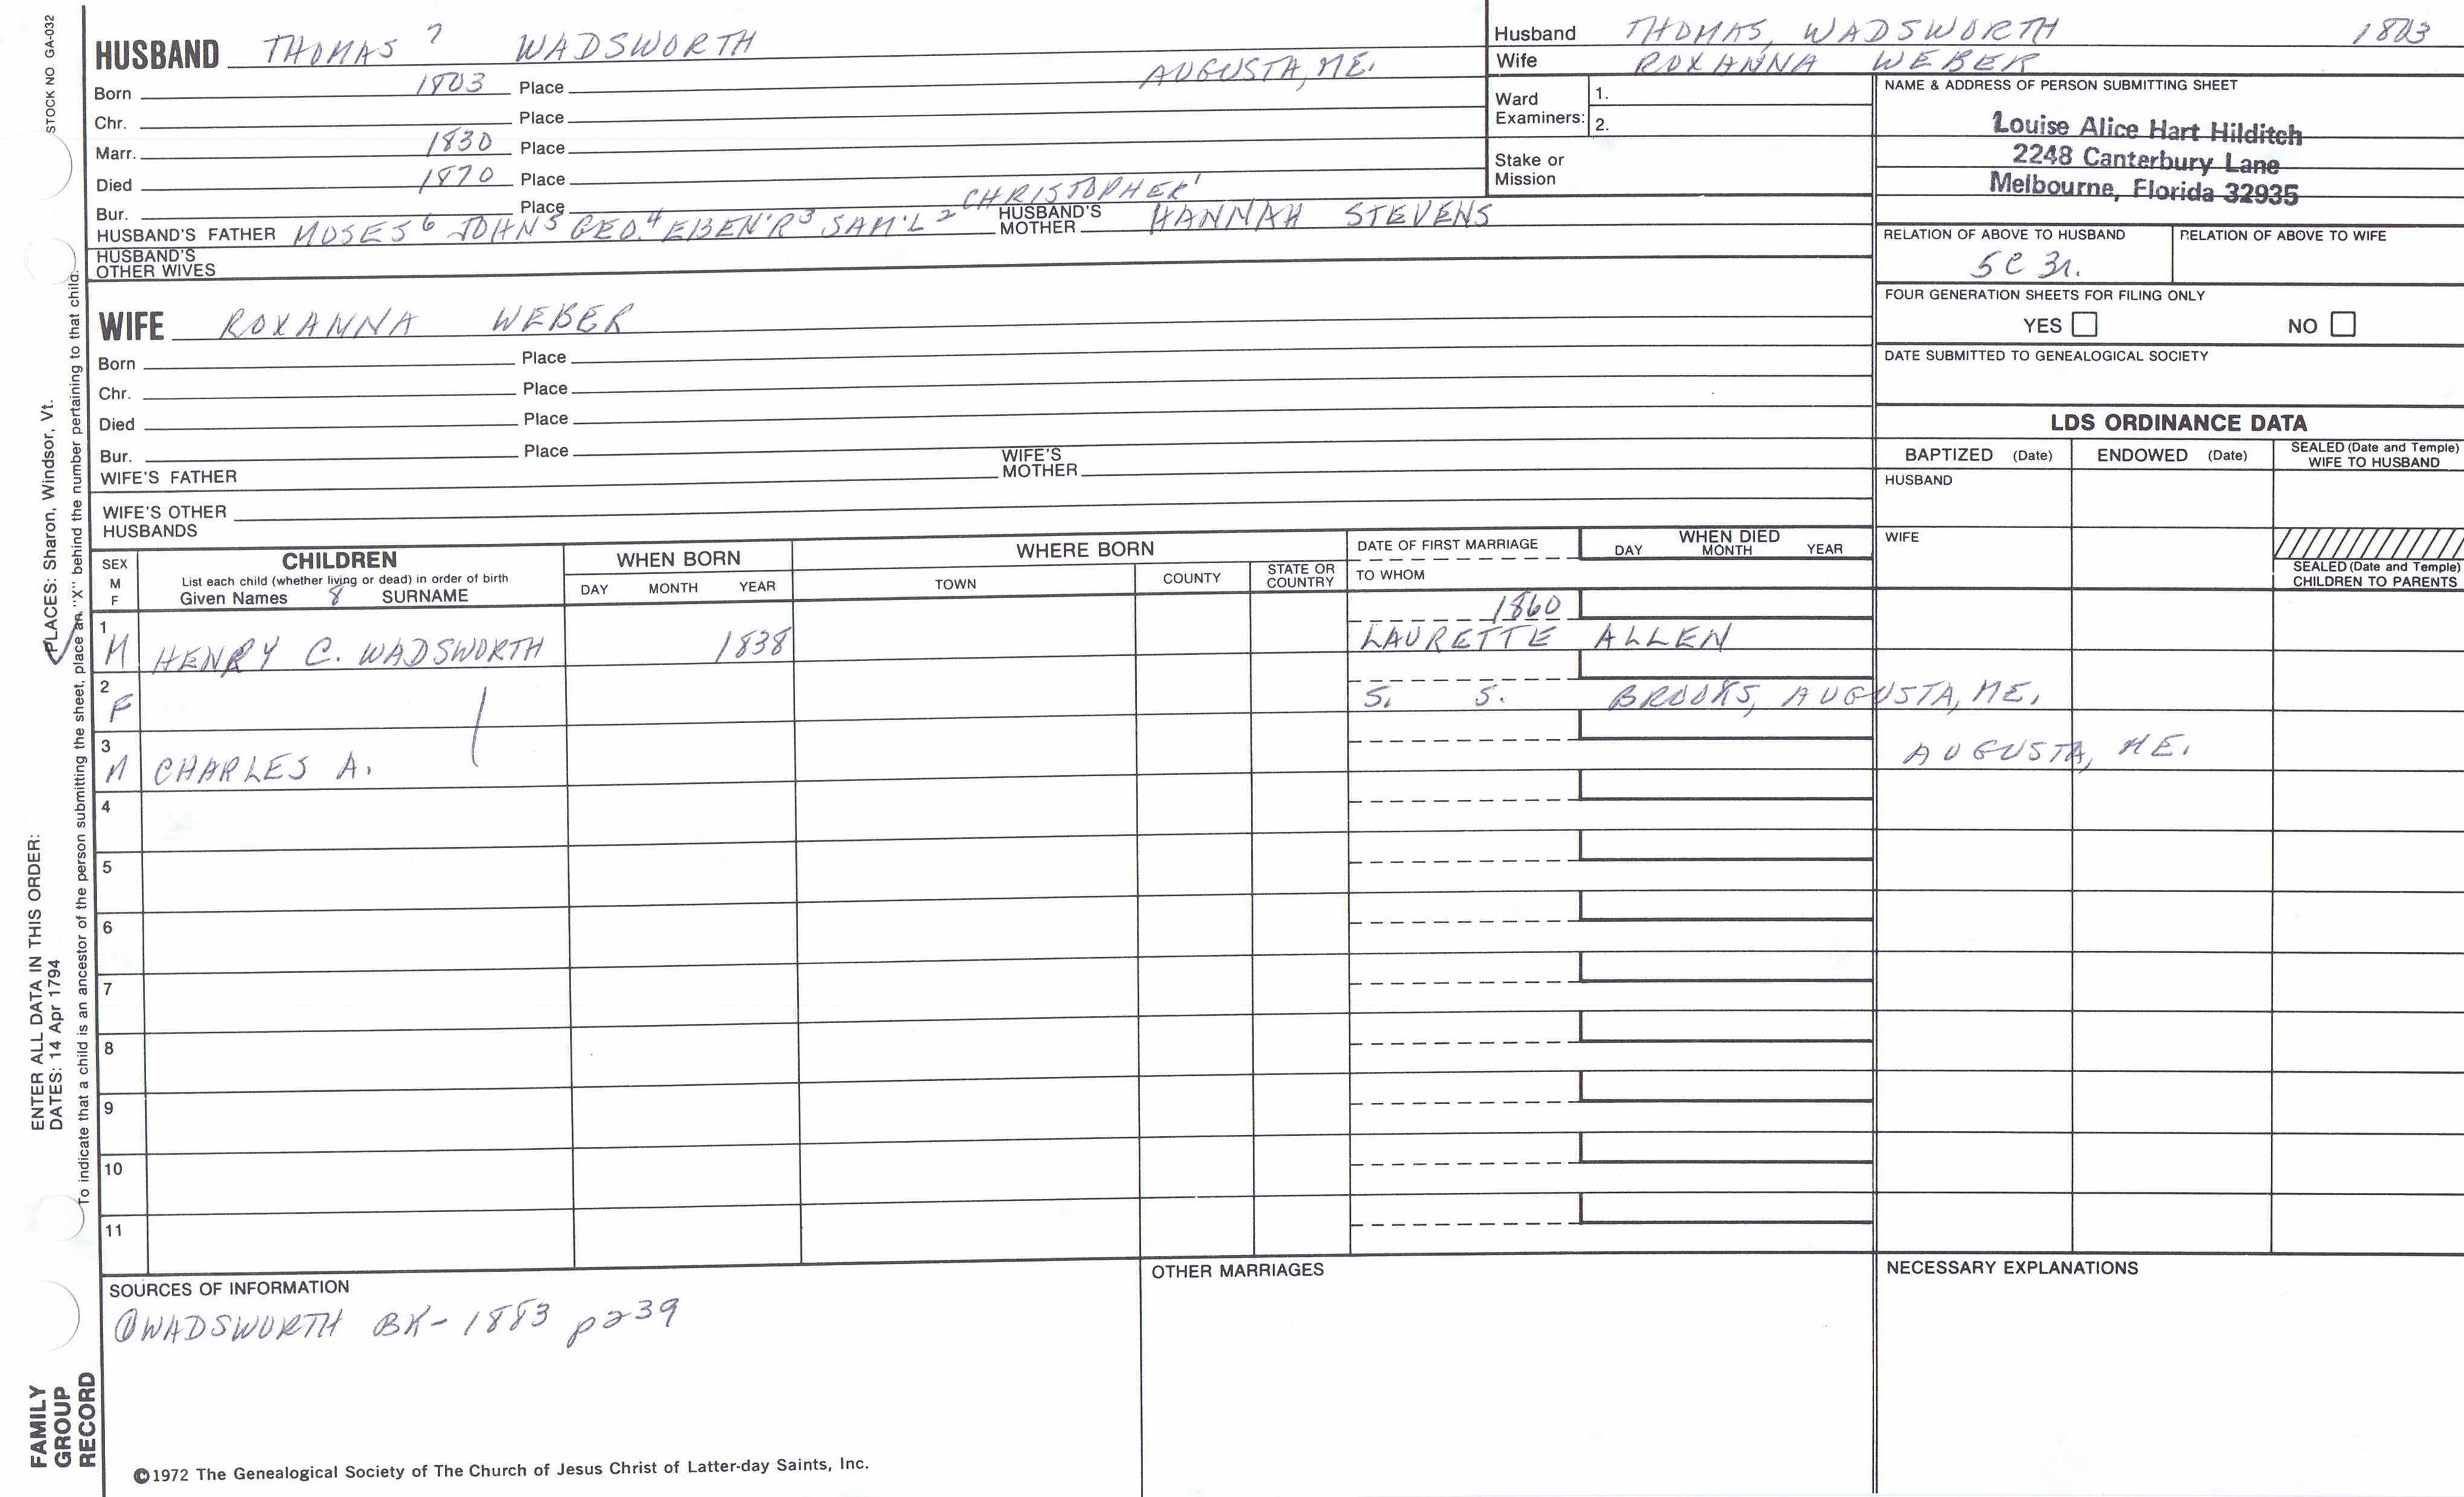 STOCK NO GA-032
HUSBAND THOMAS 7 WADSWORTH
AUGUSTA, ME.
Born 1803 Place
Chr. Place
Marr. 1830 Place
Died 1870 Place
Bur. Place
HUSBAND'S FATHER MOSES 6 JOHN 5 GEO. 4 EBEN'R 3 SAM'L 2 CHRISTOPHER 1 HUSBAND'S MOTHER HANNAH STEVENS
HUSBAND'S OTHER WIVES
WIFE ROXANNA WEBER
Born Place
Chr. Place
Died Place
Bur. Place
WIFE'S FATHER WIFE'S MOTHER
WIFE'S OTHER HUSBANDS
Husband THOMAS, WADSWORTH 1803
Wife ROXANNA WEBER
Ward Examiners: 1.
2.
Stake or Mission
NAME & ADDRESS OF PERSON SUBMITTING SHEET
Louise Alice Hart Hilditch
2248 Canterbury Lane
Melbourne, Florida 32935
RELATION OF ABOVE TO HUSBAND RELATION OF ABOVE TO WIFE
5C 3r.
FOUR GENERATION SHEETS FOR FILING ONLY
YES NO
DATE SUBMITTED TO GENEALOGICAL SOCIETY
LDS ORDINANCE DATA
BAPTIZED (Date) ENDOWED (Date) SEALED (Date and Temple) WIFE TO HUSBAND
HUSBAND
WIFE
SEALED (Date and Temple) CHILDREN TO PARENTS
SEX M F
CHILDREN
List each child (whether living or dead) in order of birth
Given Names 8 SURNAME
WHEN BORN
DAY MONTH YEAR
WHERE BORN
TOWN COUNTY STATE OR COUNTRY
DATE OF FIRST MARRIAGE
TO WHOM
WHEN DIED
DAY MONTH YEAR
1860
1 M HENRY C. WADSWORTH 1838 LAURETTE ALLEN
2 F S. S. BROOKS, AUGUSTA, ME.
3 M CHARLES A. AUGUSTA, ME.
4
5
6
7
8
9
10
11
SOURCES OF INFORMATION
① WADSWORTH BK- 1883 p239
OTHER MARRIAGES
NECESSARY EXPLANATIONS
©1972 The Genealogical Society of The Church of Jesus Christ of Latter-day Saints, Inc.
FAMILY
GROUP
RECORD
ENTER ALL DATA IN THIS ORDER:
DATES: 14 Apr 1794
PLACES: Sharon, Windsor, Vt.
To indicate that a child is an ancestor of the person submitting the sheet, place an "X" behind the number pertaining to that child.